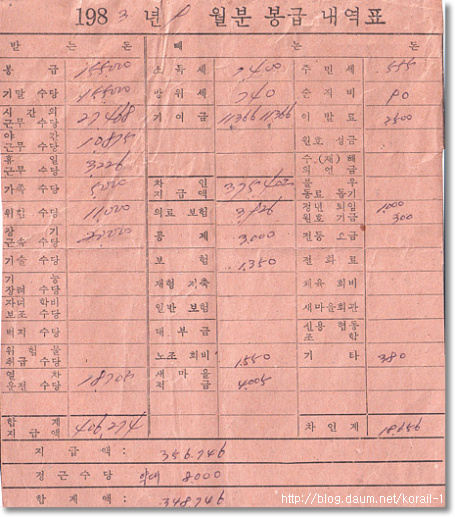 1983 년 월분 봉급 내역표
받 는 돈 떼 는 돈
봉 급 155,000 소 득 세 7,400 주 민 세 555
기말 수당 155,000 방 위 세 740 순 직 비 90
시 간 외 근무 수당 27,468 기 여 금 11,366 11,366 이 발 료
야 간 근무 수당 10,875 월호 성금
휴 일 근무 수당 3,226 수.(재) 해 의 연 금
가족 수당 5,000 차 인 지 급 액 불 우 동료 돕기
위험 수당 11,000 의료 보험 정년 퇴임 월호 기금 1,000 300
장 기 근속 수당 공 제 3,000 전등 요금
기술 수당 보 험 1,350 전 화 료
기 능 장려 수당 재형 저축 체육 회비
자녀 학비 보조 수당 일반 보험 새마을회관
벽지 수당 대 부 금 신용 협동 조 합
위 험 물 취급 수당 노조 회비 1,550 기 타 380
열 차 운전 수당 새 마 을 적 금 4,005
합 계 지 급 액 406,274 차 인 계
지 급 액 : 356,746
정 근 수 당 8000
합 계 액 : 348,746
http://blog.daum.net/korail-1